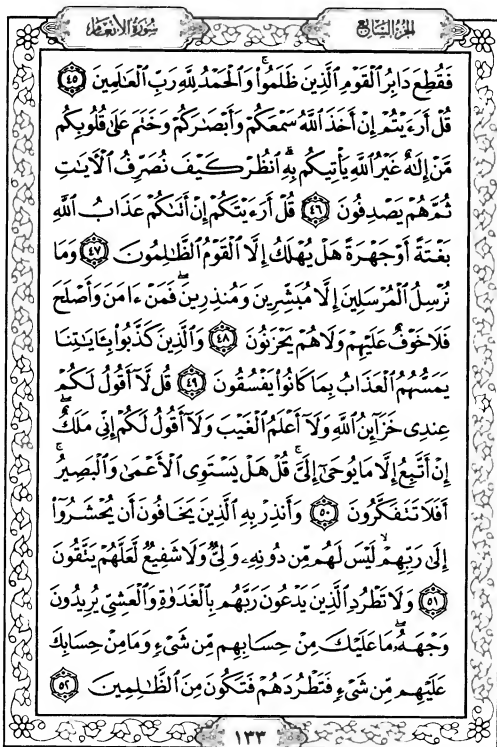 الجزء السابع
سورة الأنعام
فَقُطِعَ دَابِرُ ٱلْقَوْمِ ٱلَّذِينَ ظَلَمُوا۟ ۚ وَٱلْحَمْدُ لِلَّهِ رَبِّ ٱلْعَٰلَمِينَ ٤٥
قُلْ أَرَءَيْتُمْ إِنْ أَخَذَ ٱللَّهُ سَمْعَكُمْ وَأَبْصَٰرَكُمْ وَخَتَمَ عَلَىٰ قُلُوبِكُم
مَّنْ إِلَٰهٌ غَيْرُ ٱللَّهِ يَأْتِيكُم بِهِ ۗ ٱنظُرْ كَيْفَ نُصَرِّفُ ٱلْءَايَٰتِ
ثُمَّ هُمْ يَصْدِفُونَ ٤٦ قُلْ أَرَءَيْتَكُمْ إِنْ أَتَىٰكُمْ عَذَابُ ٱللَّهِ
بَغْتَةً أَوْ جَهْرَةً هَلْ يُهْلَكُ إِلَّا ٱلْقَوْمُ ٱلظَّٰلِمُونَ ٤٧ وَمَا
نُرْسِلُ ٱلْمُرْسَلِينَ إِلَّا مُبَشِّرِينَ وَمُنذِرِينَ ۖ فَمَنْ ءَامَنَ وَأَصْلَحَ
فَلَا خَوْفٌ عَلَيْهِمْ وَلَا هُمْ يَحْزَنُونَ ٤٨ وَٱلَّذِينَ كَذَّبُوا۟ بِـَٔايَٰتِنَا
يَمَسُّهُمُ ٱلْعَذَابُ بِمَا كَانُوا۟ يَفْسُقُونَ ٤٩ قُل لَّآ أَقُولُ لَكُمْ
عِندِى خَزَآئِنُ ٱللَّهِ وَلَآ أَعْلَمُ ٱلْغَيْبَ وَلَآ أَقُولُ لَكُمْ إِنِّى مَلَكٌ ۖ
إِنْ أَتَّبِعُ إِلَّا مَا يُوحَىٰٓ إِلَىَّ ۚ قُلْ هَلْ يَسْتَوِى ٱلْأَعْمَىٰ وَٱلْبَصِيرُ ۚ
أَفَلَا تَتَفَكَّرُونَ ٥٠ وَأَنذِرْ بِهِ ٱلَّذِينَ يَخَافُونَ أَن يُحْشَرُوٓا۟
إِلَىٰ رَبِّهِمْ ۙ لَيْسَ لَهُم مِّن دُونِهِۦ وَلِىٌّ وَلَا شَفِيعٌ لَّعَلَّهُمْ يَتَّقُونَ
٥١ وَلَا تَطْرُدِ ٱلَّذِينَ يَدْعُونَ رَبَّهُم بِٱلْغَدَوٰةِ وَٱلْعَشِىِّ يُرِيدُونَ
وَجْهَهُۥ ۖ مَا عَلَيْكَ مِنْ حِسَابِهِم مِّن شَىْءٍ وَمَا مِنْ حِسَابِكَ
عَلَيْهِم مِّن شَىْءٍ فَتَطْرُدَهُمْ فَتَكُونَ مِنَ ٱلظَّٰلِمِينَ ٥٢
١٣٣